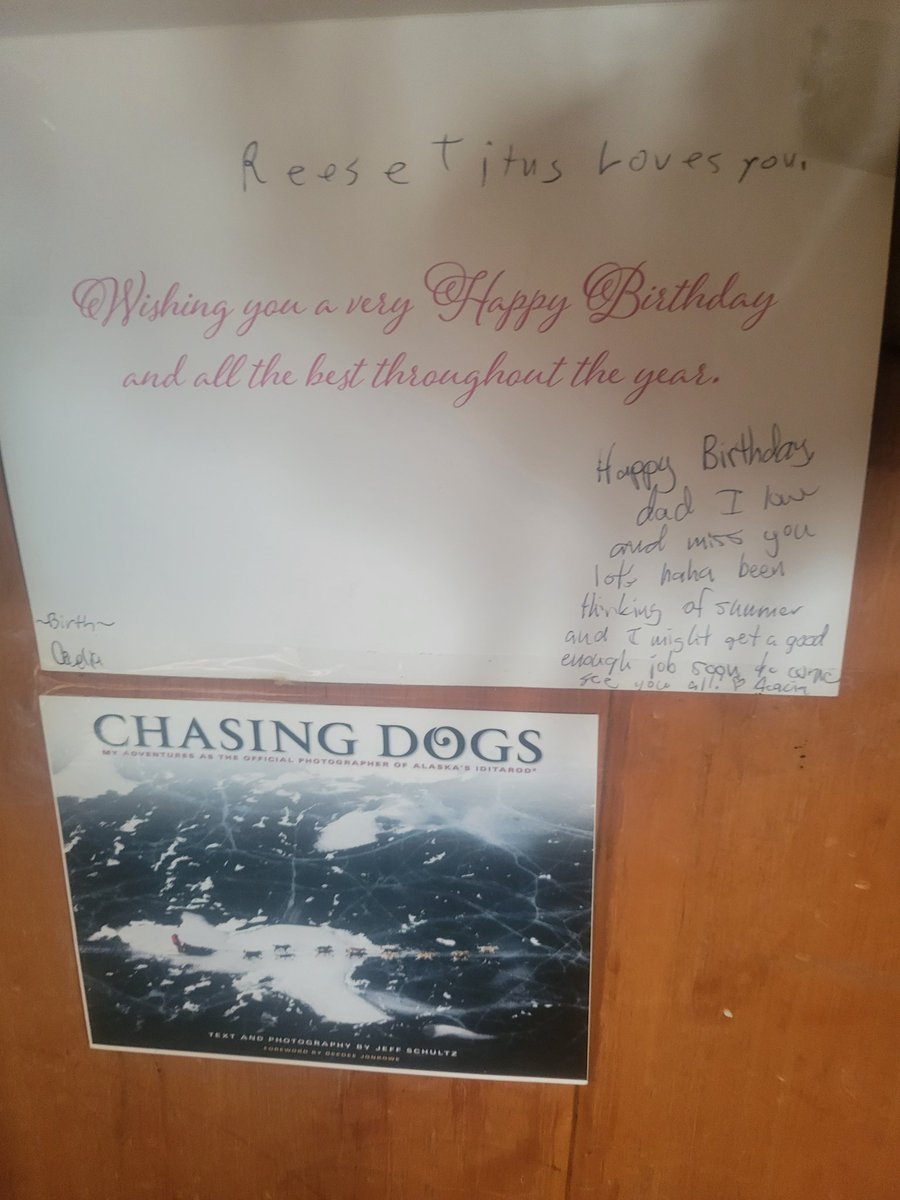 Reese Titus Loves you.
Wishing you a very Happy Birthday
and all the best throughout the year.
Happy Birthday
dad I love
and miss you
lots haha been
thinking of summer
and I might get a good
enough job soon to come
see you all! ♡
~Birth~
CHASING DOGS
MY ADVENTURES AS THE OFFICIAL PHOTOGRAPHER OF ALASKA'S IDITAROD®
TEXT AND PHOTOGRAPHY BY JEFF SCHULTZ
FOREWORD BY DEEDEE JONROWE